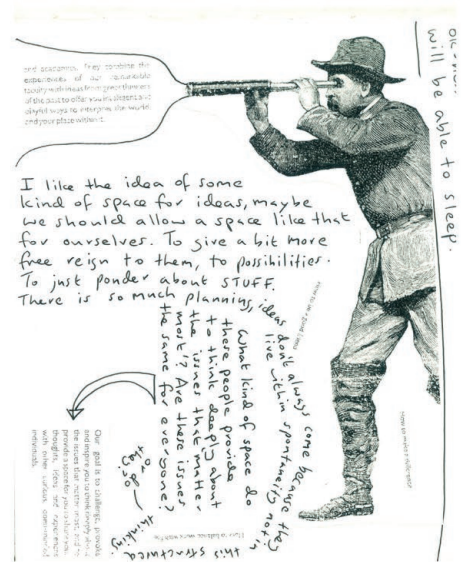 and economics. They combine the
experiences of our remarkable
faculty with ideas from great thinkers
of the past to offer you intelligent and
playful ways to interpret the world,
and your place within it.
OK - now
will be able to sleep.
I like the idea of some
kind of space for ideas, maybe
we should allow a space like that
for ourselves. To give a bit more
free reign to them, to possibilities.
To just ponder about STUFF.
There is so much planning, ideas don't always come because they
live within spontaneity not in
this structured
thinking.
What kind of space do
these people provide
to think deeply about
the issues that matter
most'? Are these issues
the same for everyone?
Our goal is to challenge, provoke
and inspire you to think deeply about
the issues that matter most, and to
provide a space for you to share your
thoughts, ideas and experiences
with other curious, open-minded
individuals.